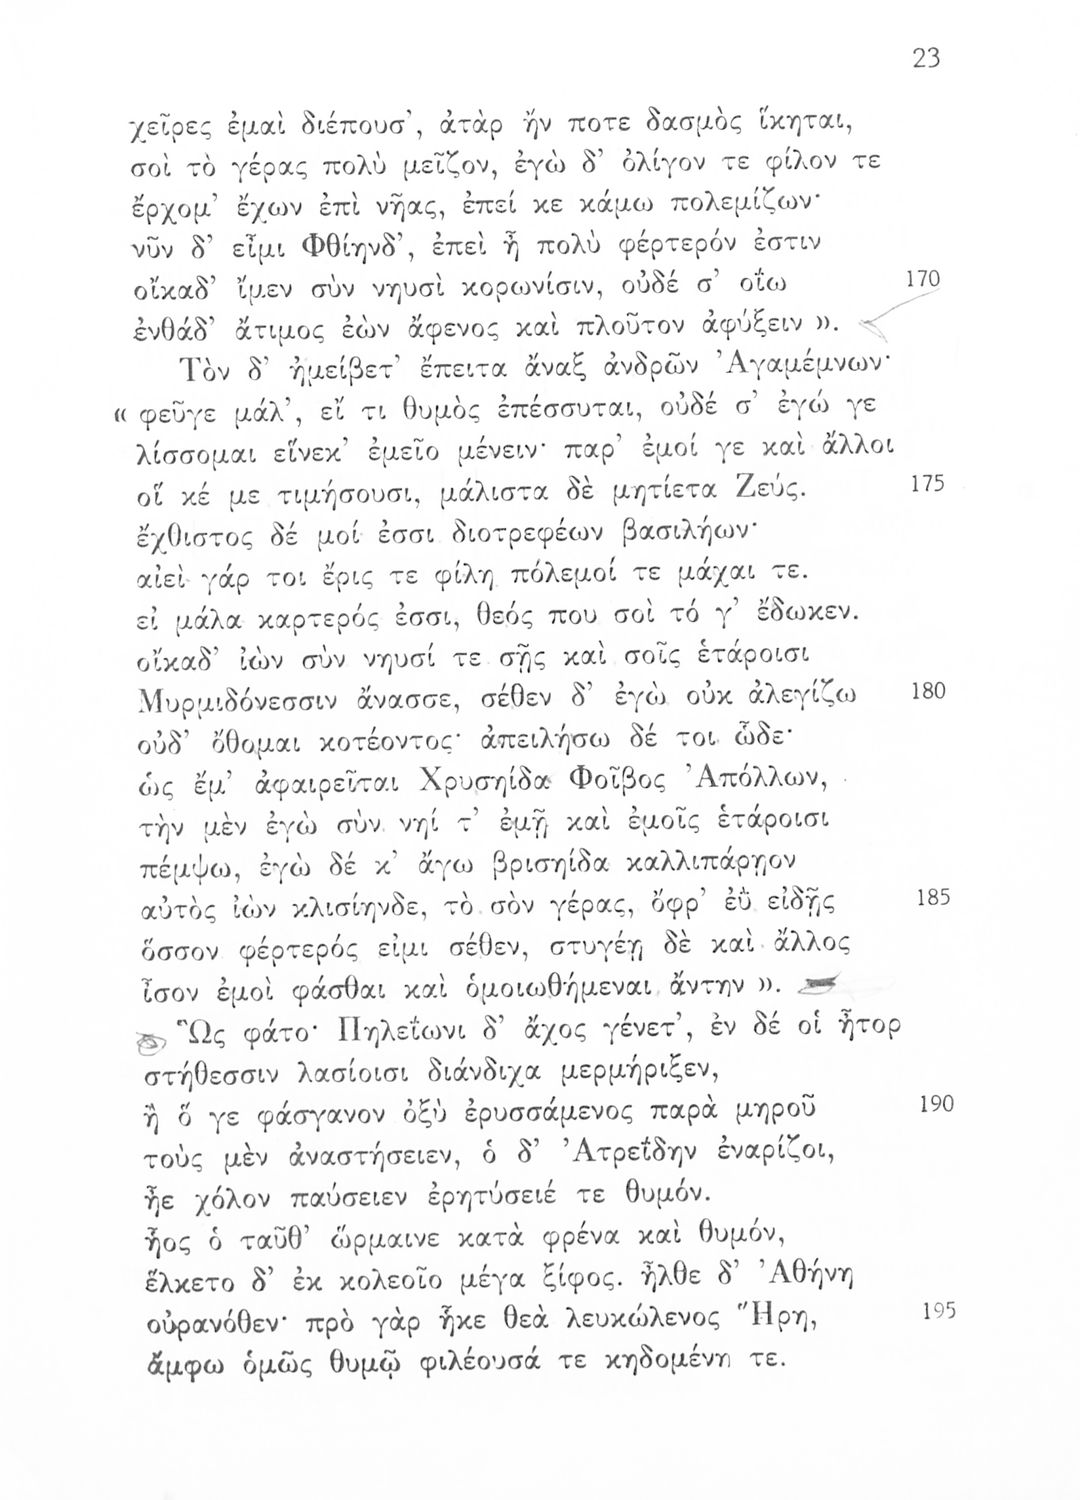 23
χεῖρες ἐμαὶ διέπουσ’, ἀτὰρ ἤν ποτε δασμὸς ἵκηται,
σοὶ τὸ γέρας πολὺ μεῖζον, ἐγὼ δ’ ὀλίγον τε φίλον τε
ἔρχομ’ ἔχων ἐπὶ νῆας, ἐπεί κε κάμω πολεμίζων·
νῦν δ’ εἶμι Φθίηνδ’, ἐπεὶ ἦ πολὺ φέρτερόν ἐστιν
οἴκαδ’ ἴμεν σὺν νηυσὶ κορωνίσιν, οὐδέ σ’ οἴω 170
ἐνθάδ’ ἄτιμος ἐὼν ἄφενος καὶ πλοῦτον ἀφύξειν ».
Τὸν δ’ ἠμείβετ’ ἔπειτα ἄναξ ἀνδρῶν Ἀγαμέμνων·
« φεῦγε μάλ’, εἴ τι θυμὸς ἐπέσσυται, οὐδέ σ’ ἐγώ γε
λίσσομαι εἵνεκ’ ἐμεῖο μένειν· παρ’ ἐμοί γε καὶ ἄλλοι
οἵ κέ με τιμήσουσι, μάλιστα δὲ μητίετα Ζεύς. 175
ἔχθιστος δέ μοί ἐσσι διοτρεφέων βασιλήων·
αἰεὶ γάρ τοι ἔρις τε φίλη πόλεμοί τε μάχαι τε.
εἰ μάλα καρτερός ἐσσι, θεός που σοὶ τό γ’ ἔδωκεν.
οἴκαδ’ ἰὼν σὺν νηυσί τε σῇς καὶ σοῖς ἑτάροισι
Μυρμιδόνεσσιν ἄνασσε, σέθεν δ’ ἐγὼ οὐκ ἀλεγίζω 180
οὐδ’ ὄθομαι κοτέοντος· ἀπειλήσω δέ τοι ὧδε·
ὡς ἔμ’ ἀφαιρεῖται Χρυσηίδα Φοῖβος Ἀπόλλων,
τὴν μὲν ἐγὼ σὺν νηί τ’ ἐμῇ καὶ ἐμοῖς ἑτάροισι
πέμψω, ἐγὼ δέ κ’ ἄγω βρισηίδα καλλιπάρῃον
αὐτὸς ἰὼν κλισίηνδε, τὸ σὸν γέρας, ὄφρ’ ἐῢ εἰδῇς 185
ὅσσον φέρτερός εἰμι σέθεν, στυγέῃ δὲ καὶ ἄλλος
ἶσον ἐμοὶ φάσθαι καὶ ὁμοιωθήμεναι ἄντην ».
Ὣς φάτο· Πηλεΐωνι δ’ ἄχος γένετ’, ἐν δέ οἱ ἦτορ
στήθεσσιν λασίοισι διάνδιχα μερμήριξεν,
ἢ ὅ γε φάσγανον ὀξὺ ἐρυσσάμενος παρὰ μηροῦ 190
τοὺς μὲν ἀναστήσειεν, ὁ δ’ Ἀτρεΐδην ἐναρίζοι,
ἦε χόλον παύσειεν ἐρητύσειέ τε θυμόν.
ἧος ὁ ταῦθ’ ὥρμαινε κατὰ φρένα καὶ θυμόν,
ἕλκετο δ’ ἐκ κολεοῖο μέγα ξίφος. ἦλθε δ’ Ἀθήνη
οὐρανόθεν· πρὸ γὰρ ἧκε θεὰ λευκώλενος Ἥρη, 195
ἄμφω ὁμῶς θυμῷ φιλέουσά τε κηδομένη τε.